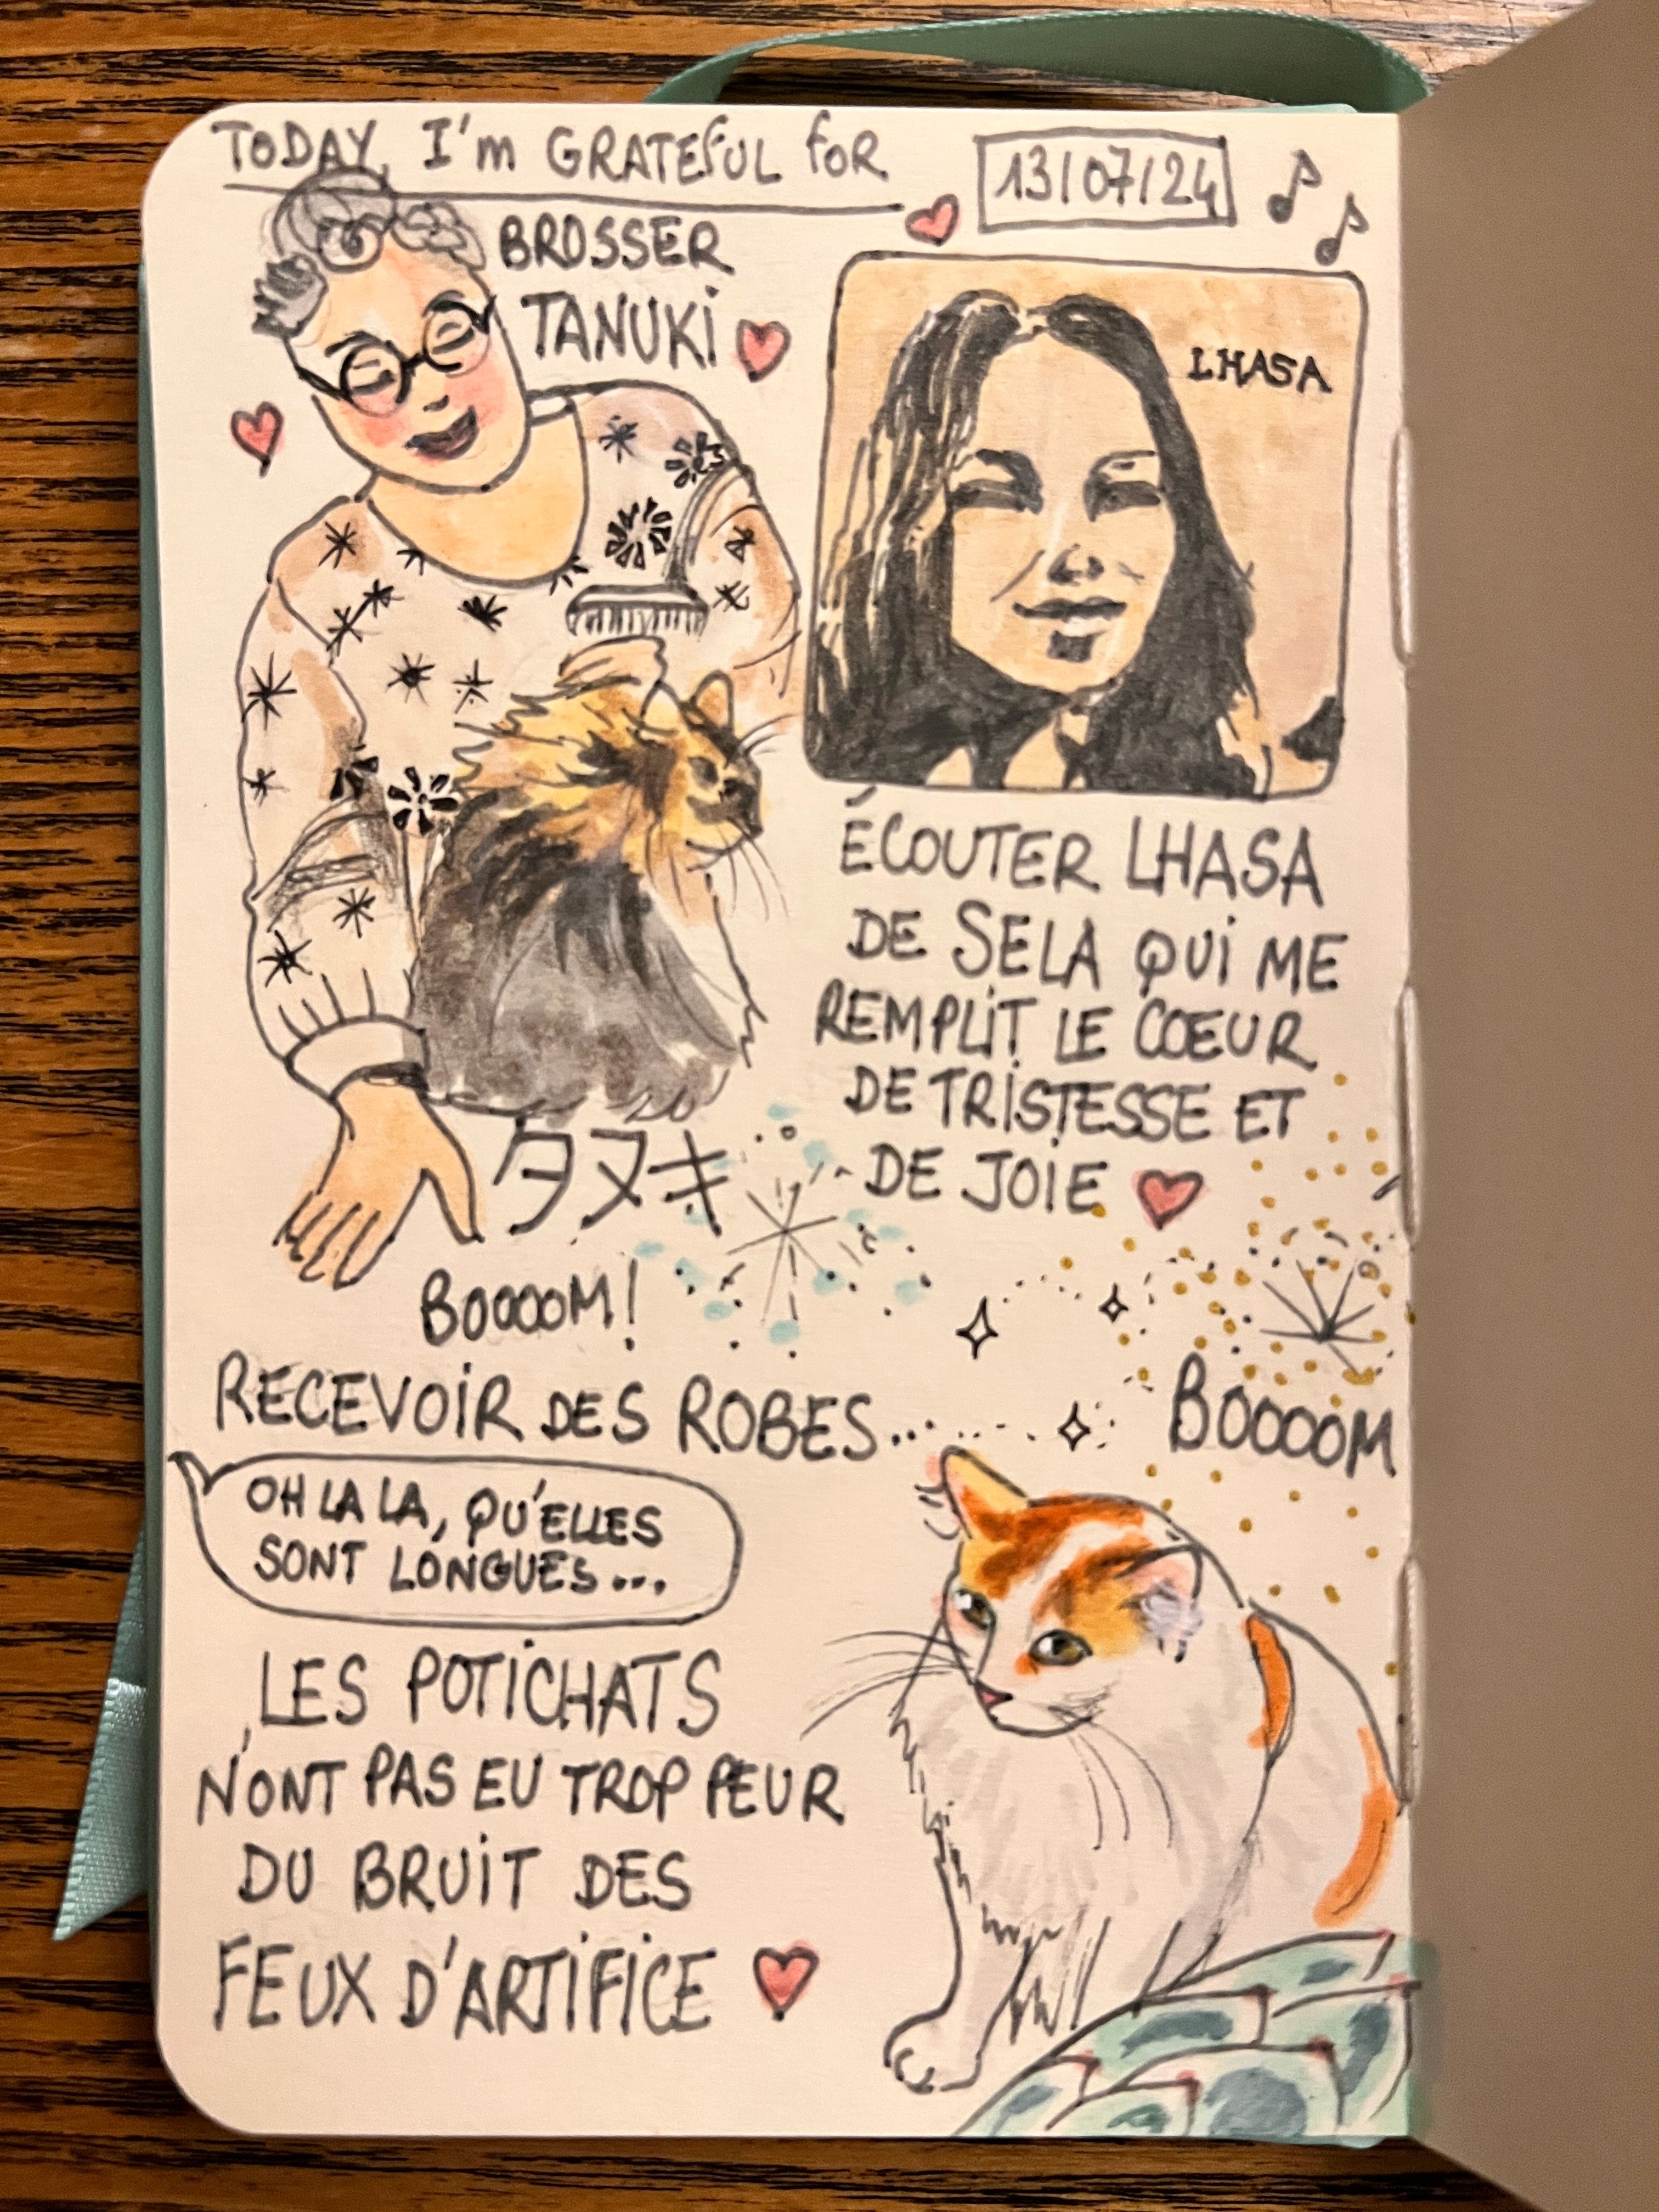 TODAY, I'm GRATEFUL FOR
13/07/24
BROSSER
TANUKi
LHASA
ÉCOUTER LHASA
DE SELA QUi ME
REMPLiT LE COEUR
DE TRiSTESSE ET
DE JOiE
タヌキ
BOOOOM!
RECEVOiR DES ROBES...
BOOOOM
OH LA LA, QU'ELLES
SONT LONGUES...
LES POTiCHATS
N'ONT PAS EU TROP PEUR
DU BRUiT DES
FEUX D'ARTiFiCE